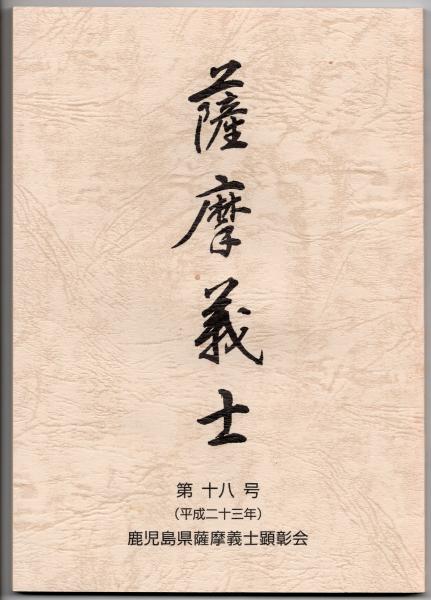 薩摩義士
第 十八 号
（平成二十三年）
鹿児島県薩摩義士顕彰会